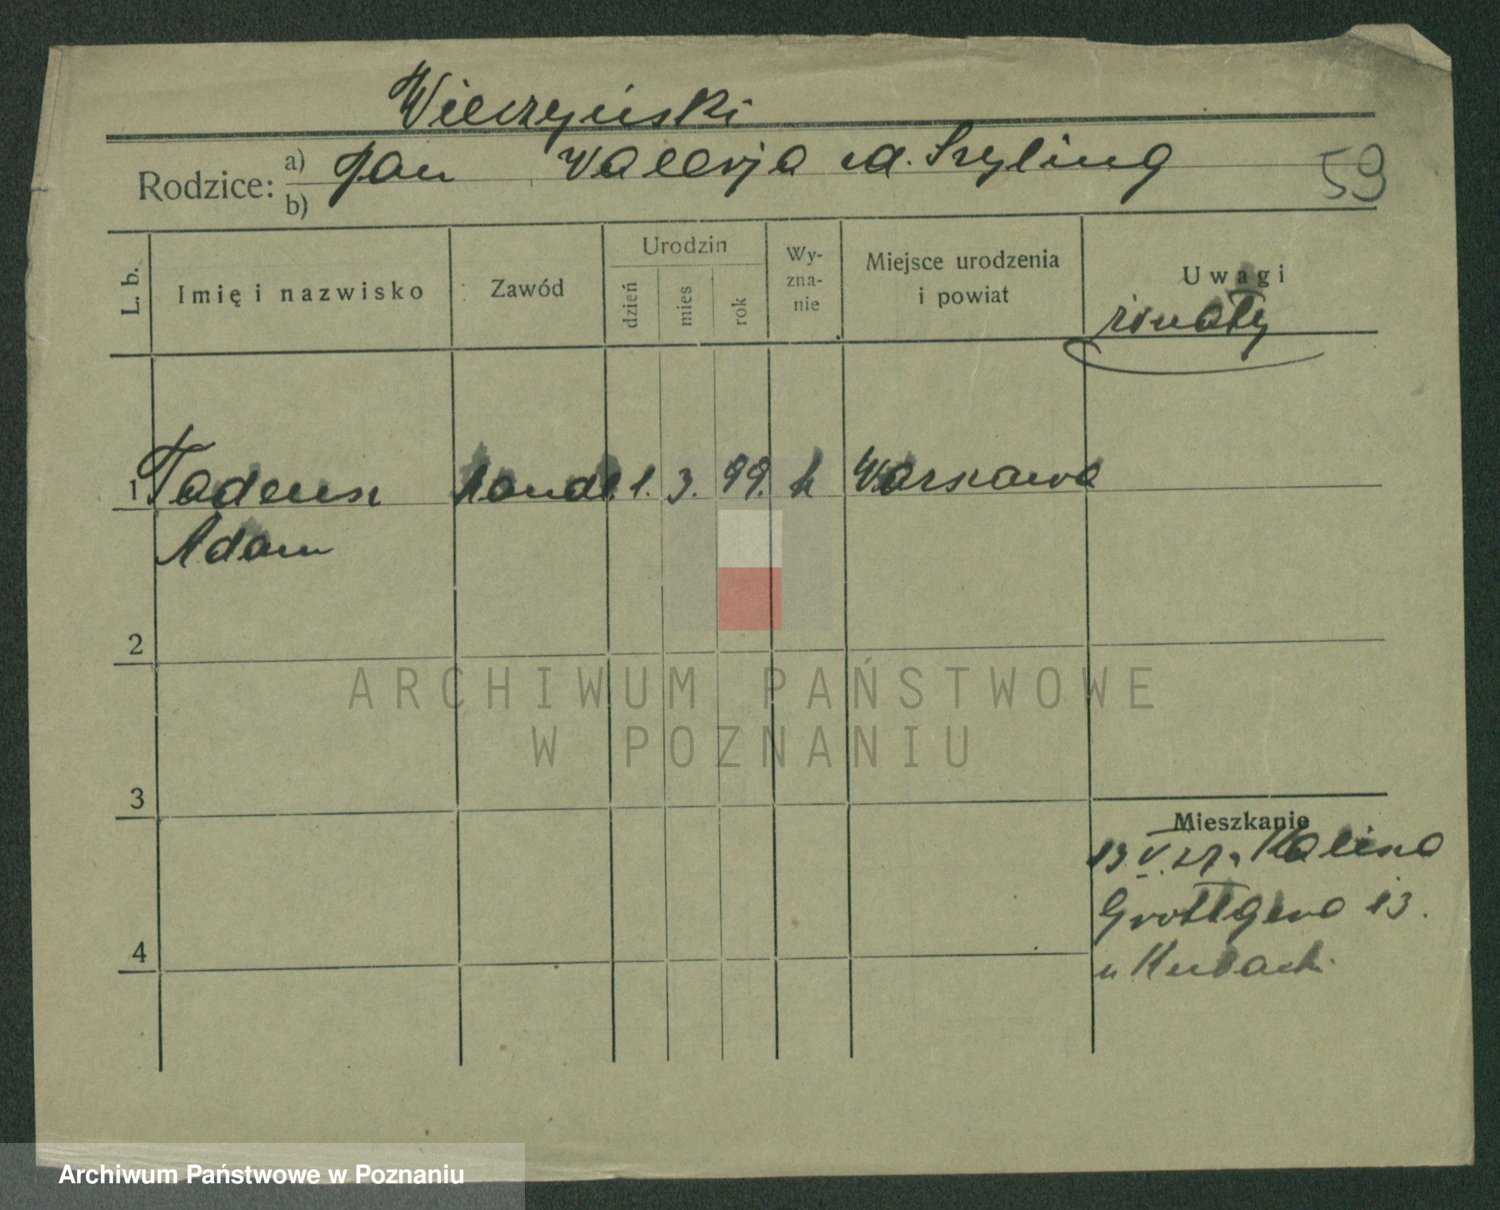 Wilczyński
Rodzice: a) Jan Walerja zd. Szyling
b)
59
L. b.
Imię i nazwisko
Zawód
Urodzin
dzień
mies
rok
Wy-
zna-
nie
Miejsce urodzenia
i powiat
Uwagi
żonaty
1 Tadeusz handl. 1. 3. 99. k Warszawa
Adam
2
3
4
Mieszkanie
13 V. 27. Kalisza
Grottgera 13.
u Kubacki
ARCHIWUM PAŃSTWOWE
W POZNANIU
Archiwum Państwowe w Poznaniu